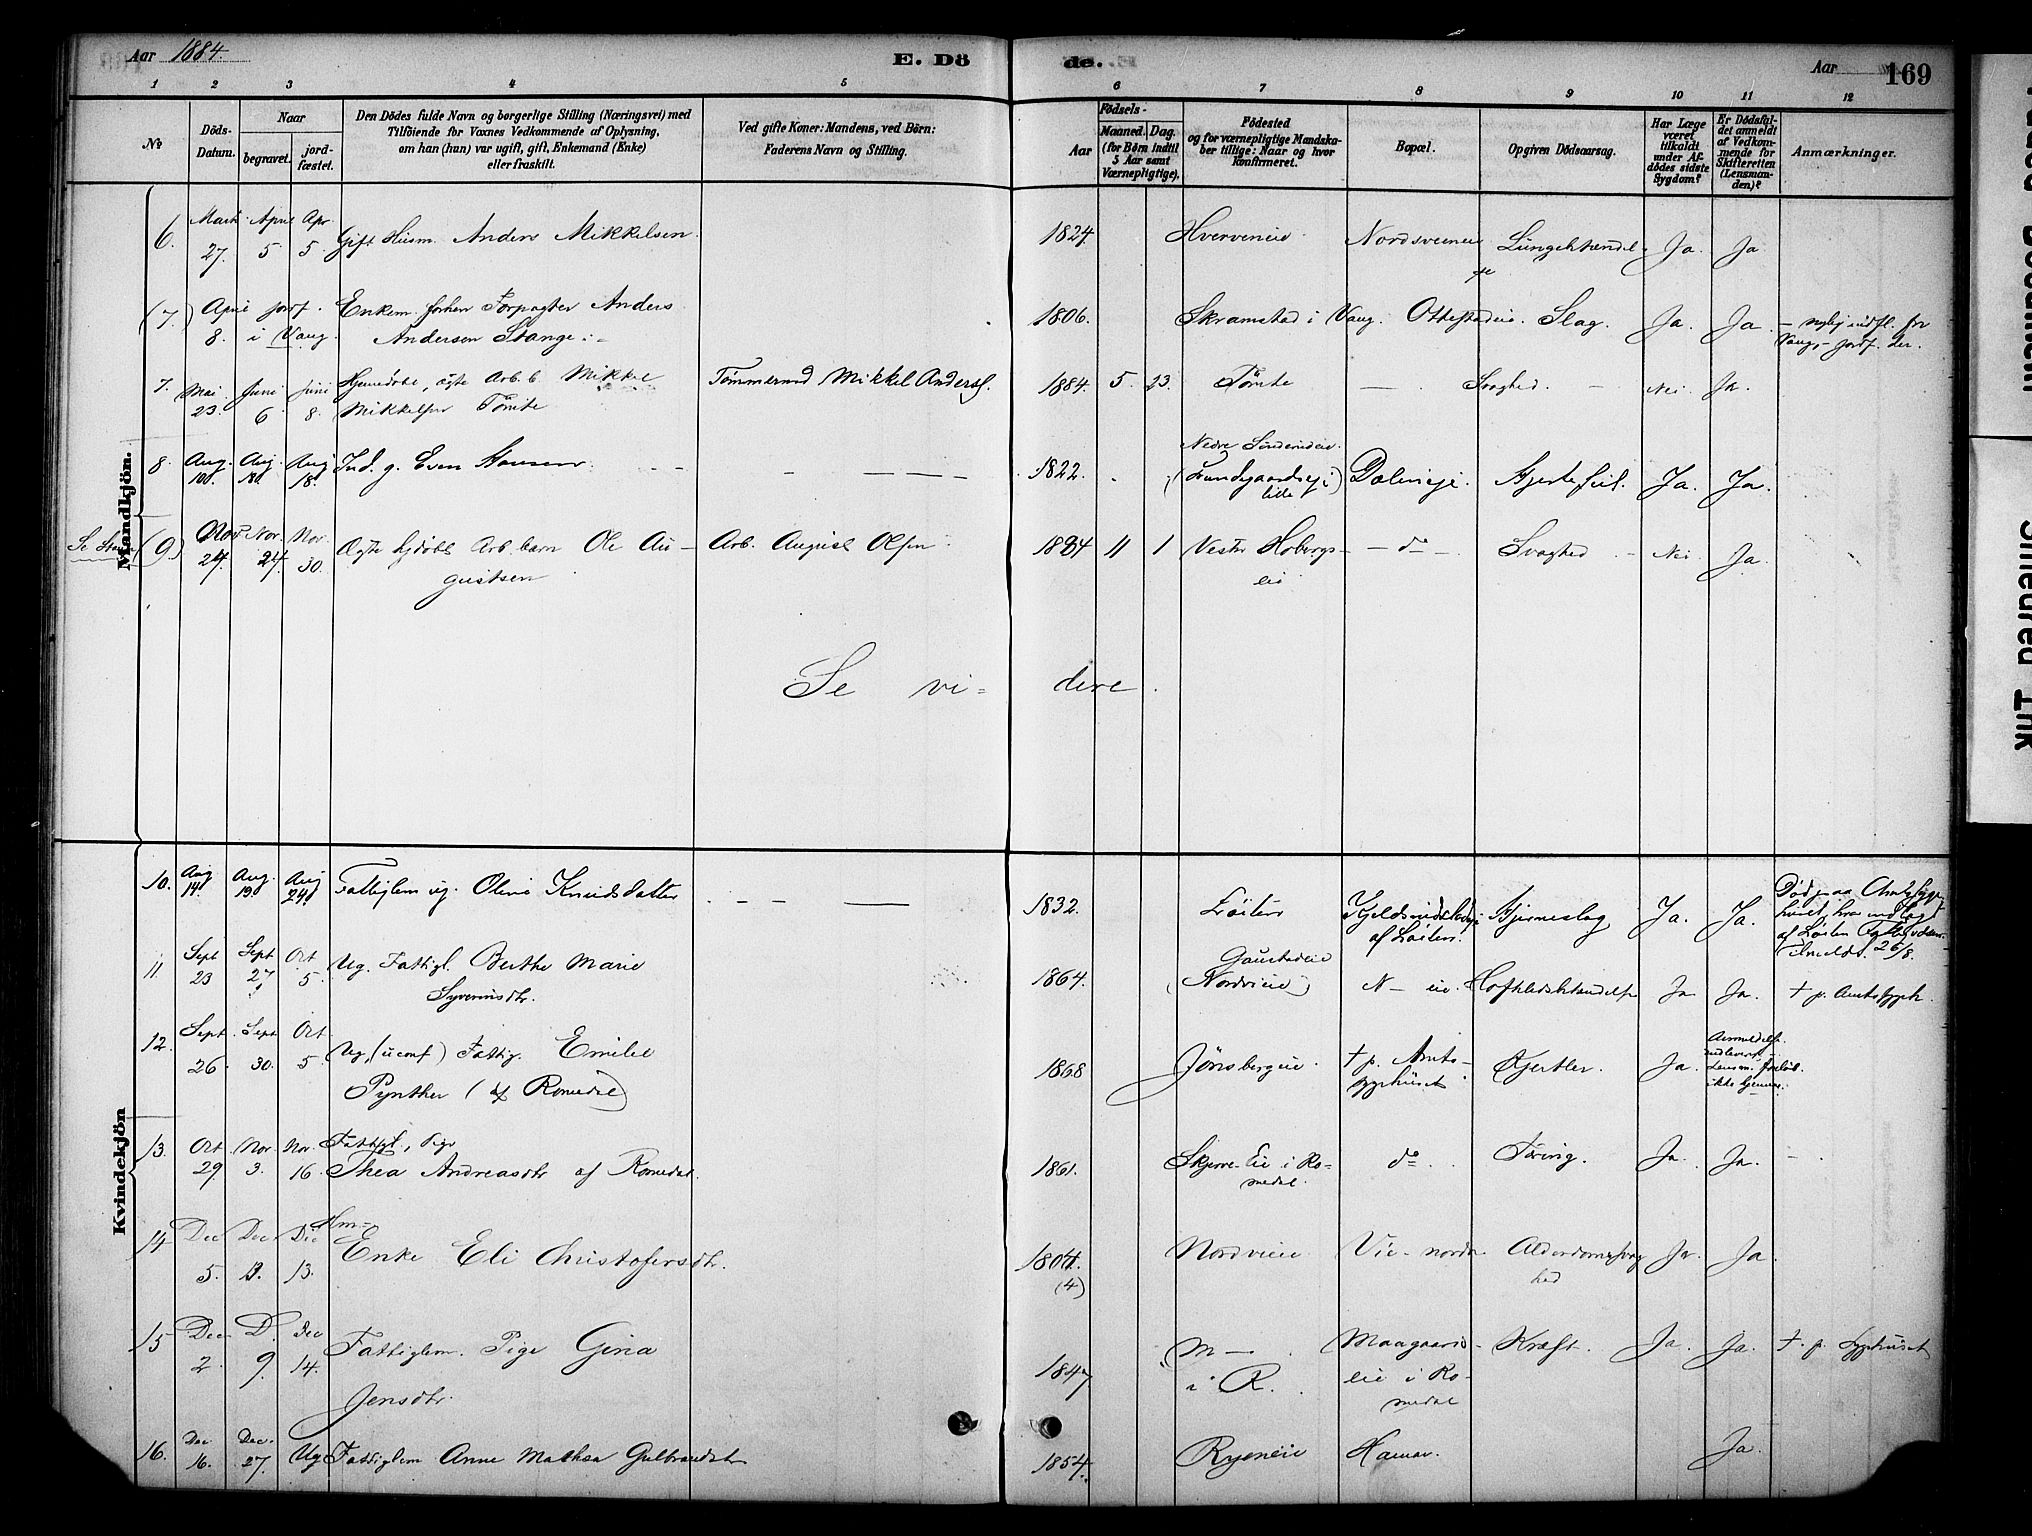 Aar 1884.
E. Döde.
Aar
169
1 2 3 4 5 6 7 8 9 10 11 12
No
Döds-Datum.
Naar
begravet.
jordfæstet.
Den Dödes fulde Navn og borgerlige Stilling (Næringsvei) med
Tilföiende for Voxnes Vedkommende af Oplysning,
om han (hun) var ugift, gift, Enkemand (Enke)
eller fraskilt.
Ved gifte Koner: Mandens, ved Börn:
Faderens Navn og Stilling.
Födsels-
Aar
Maaned. Dag.
(for Börn indtil
5 Aar samt
Værnepligtige).
Födested
og for værnepligtige Mandskaber tillige: Naar og hvor
konfirmeret.
Bopæl.
Opgiven Dödsaarsag.
Har Læge
været
tilkaldt
under Afdödes sidste
Sygdom?
Er Dödsfaldet anmeldt
af Vedkommende for
Skifteretten
(Lensmanden)?
Anmærkninger.
Mandkjön.
6. Marts 27. April 5 Apr 5 Gift Husm. Anders Mikkelsen. 1824 Hverveneie Nordsveeneie Lungebetændelse Ja. Ja
(7.) April 8. jordf. i Vang. Enkem. forhen Forpagter Anders
Andersen Stange 1806. Skramstad i Vang. Ottestadeie. Slag. Ja. Ja. – nylig indfl. fra
Vang – jordf. der.
7. Mai 23. Juni 6 Juni 8. Hjemedøbt, ægte Arb. b. Mikkel
Mikkelsen Tomte Tømmermd Mikkel Anders. 1884 5. 23. Tomte — Svaghed. – Nei. Ja.
8. Aug. 10. Aug. 18. Aug 18. Ind. g. Even Hansen – – — — 1822. Nedre
(Lundgaardseje) Dæleneje. Hjertefeil. Ja. Ja.
(9.) Nov 24. Nov. 27. Nov. 30. Ægte hjdøbt Arb. barn Ole Augustsen Arb. August Olsen 1884 11 1 Vestre Hobergs-
eie – do – Svaghed – Nei Ja.
Se videre.
Kvindekjön
10. Aug 14. Aug. 19. Aug 24. Fattiglem ug. Oline Knudsdatter – – — — 1832. Løiten
af Løiten. Hjerneslag Ja. Ja. Død paa Amtssyge-
af Løiten 26/8.
11 Sept 23 Sept 27 Oct 5. Ug. Fattigl. Berthe Marie
Syverinsdtr. 1864. Gaustadeie
(Nordvieie) N– eie. Hofteledsbetændelse Ja Ja. † p. Amtssygeh.
12. Sept. 26. Sept 30. Oct. 5. Ug. (uconf) Fattig. Emilie
Pynther (af Romedal) 1868 Jønsbergeie. † p. Amts-
sygehuset Kjertler. Ja. Anmeldelse
ikke
13. Oct 29 Nov 3. Nov. 16 Fattigl., Pige
Thea Andreasdtr af Romedal. 1861. Skjerve-Eie i Ro-
medal. do. Tæring. Ja. Ja. –
14 Dec 5. Dec. 13. Dec 13. Hm-
Enke Eli Christofersdtr. 1804.
(4) Nordvieie Vie – nordre Alderdomssvag-
hed Ja. Ja.
15 Dec 2. D. 9. Dec 14. Fattiglem. Pige Gina
Jensdtr. 1847 M –
i R. Maagaards-
eie i Ro-
medal Kræft. Ja. Ja. †. p. Sygehuset
16. Dec 16. Dec. 27. Ug Fattiglem Anne Mathea Gulbrandsdt 1854. Ryeneie Hamar. Ja.